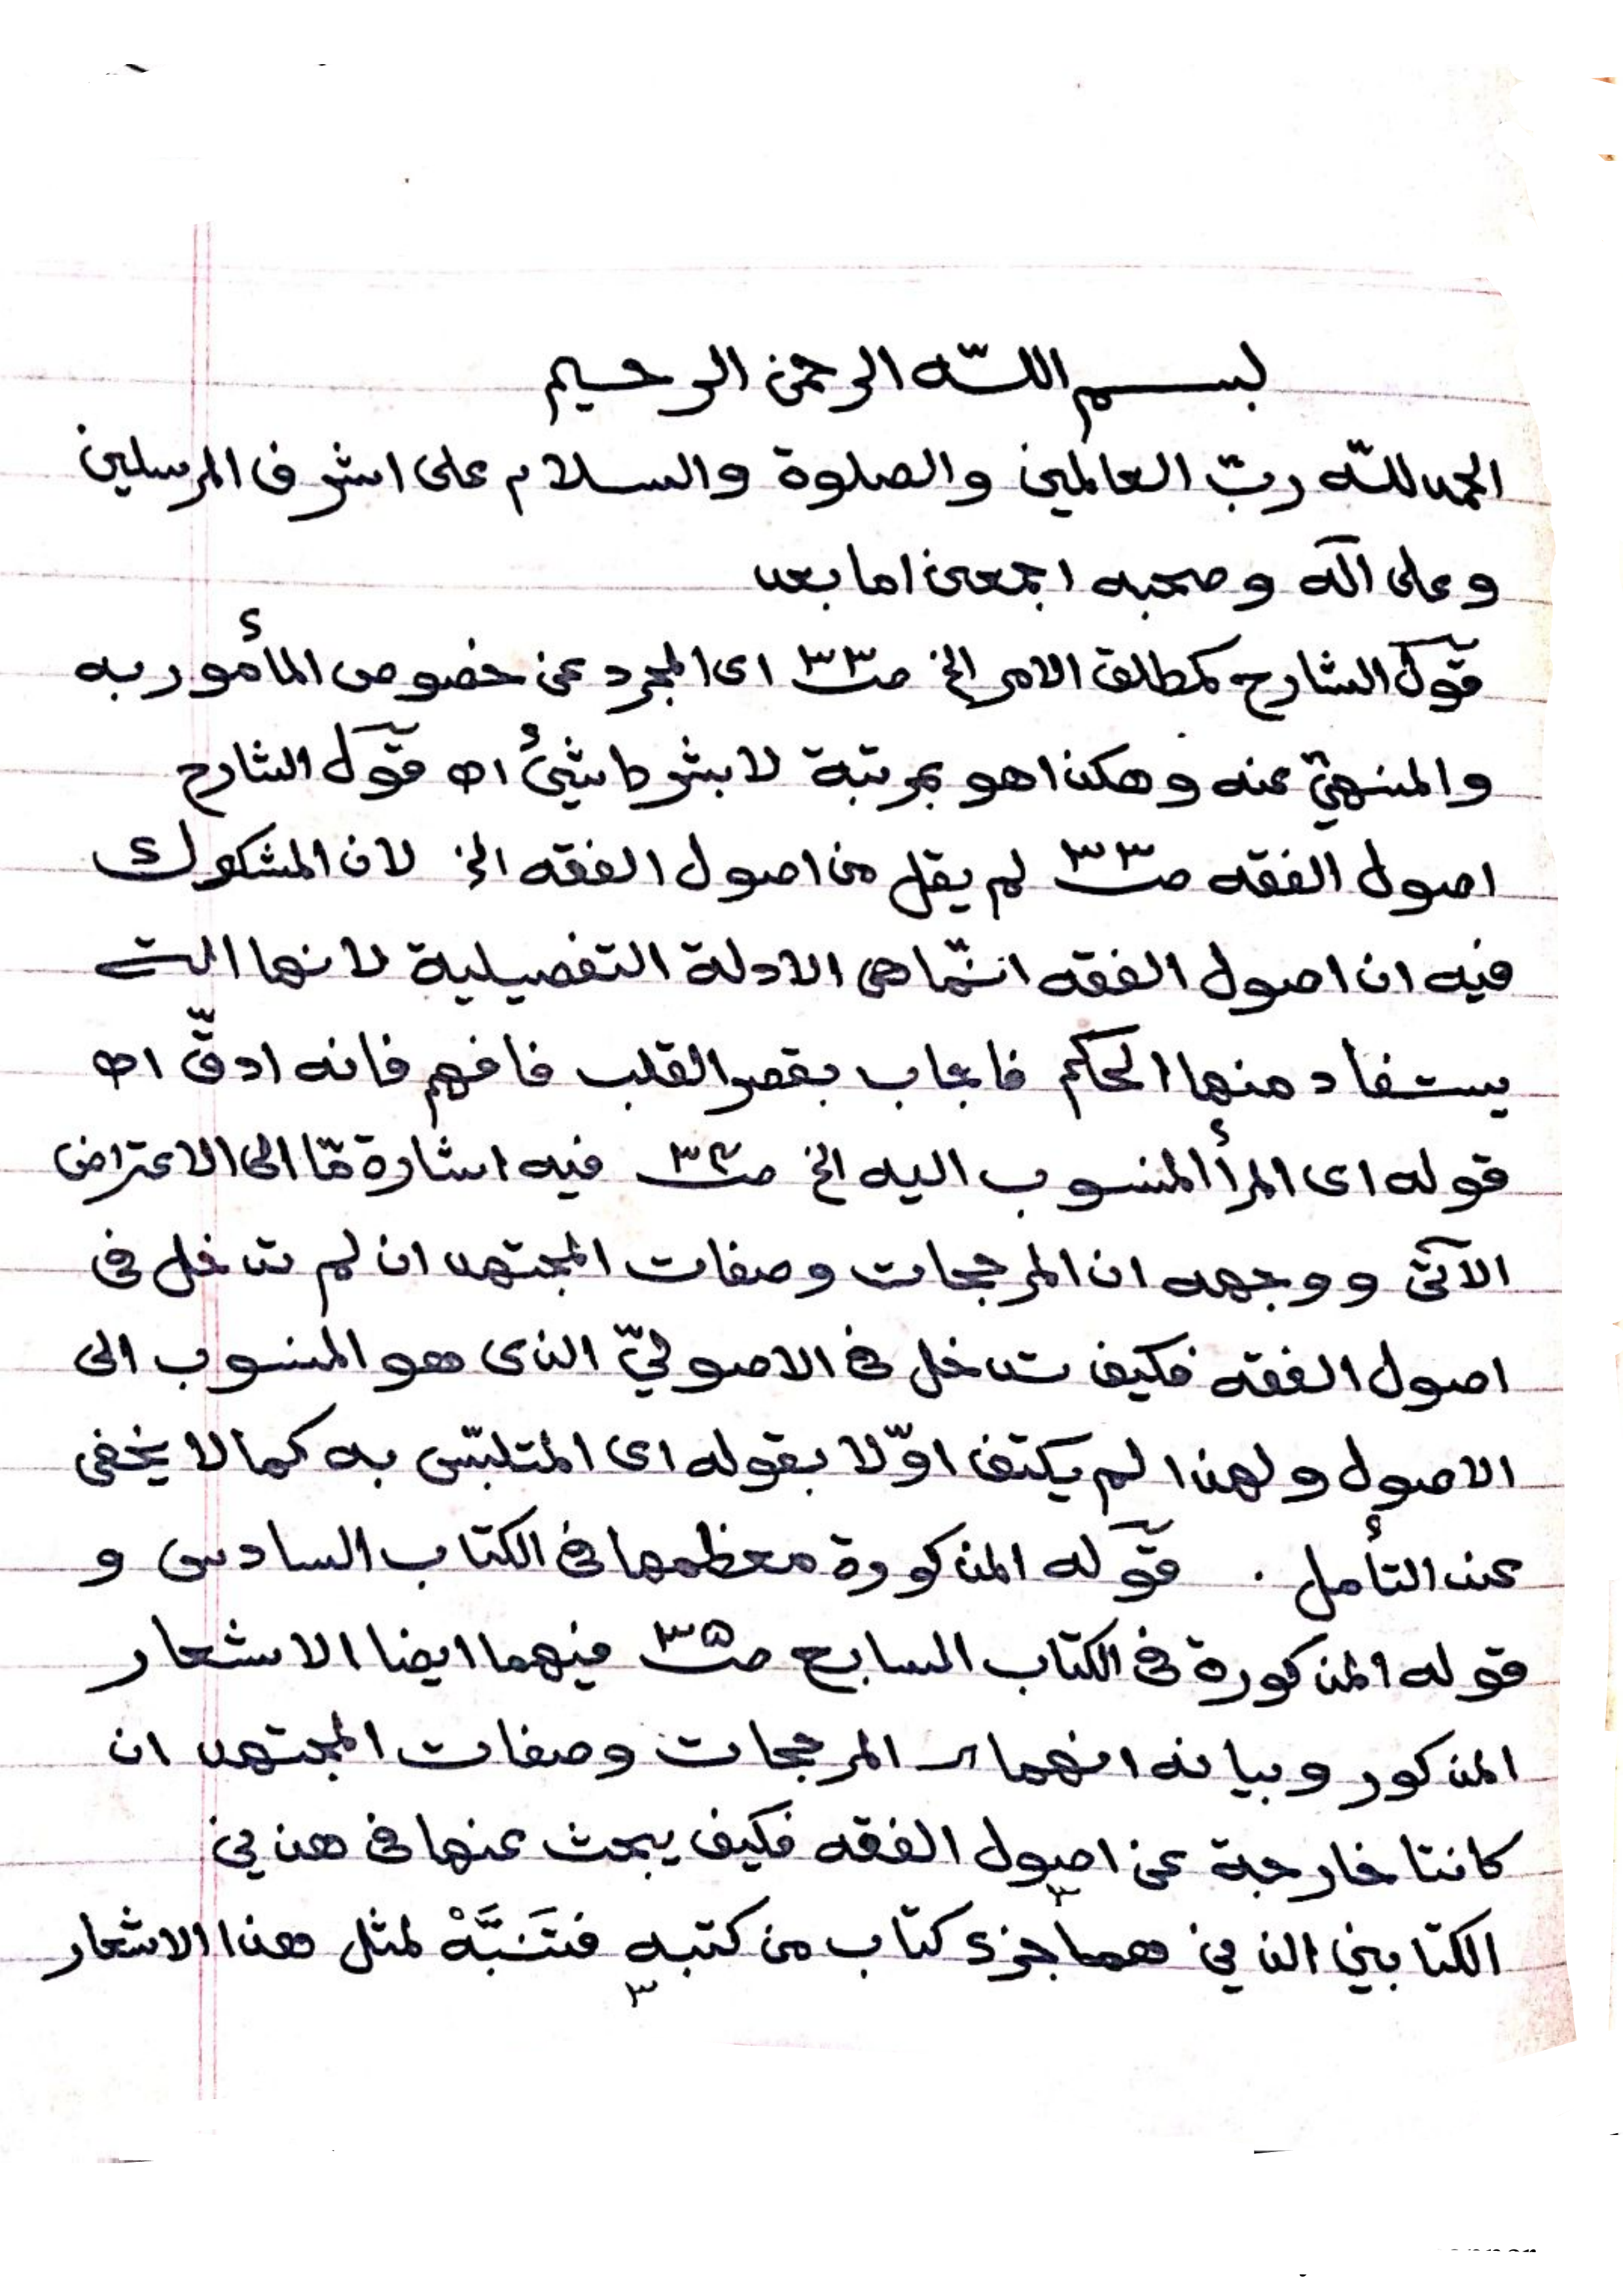 بسم اللّه الرحمن الرحيم
الحمد للّه ربّ العالمين والصلوة والسلام على اشرف المرسلين
وعلى آله وصحبه اجمعين اما بعد
قول الشارح كمطلق الامر الخ صـ٣٣ اى المجرد عن خصوص المأمور به
والمنهيّ عنه وهكذا هو بمرتبة لا بشرط شيئ اه قول الشارح
اصول الفقه صـ٣٣ لم يقل من اصول الفقه الخ لان المشكوك
فيه ان اصول الفقه انّما هى الادلة التفصيلية لانها التى
يستفاد منها الحكم فاجاب بقصر القلب فافهم فانه ادقّ اه
قوله اى المرأ المنسوب اليه الخ صـ٣٤ فيه اشارة مّا الى الاعتراض
الآتى ووجهه ان المرجحات وصفات المجتهد ان لم تدخل فى
اصول الفقه فكيف تدخل فى الاصوليّ الذى هو المنسوب الى
الاصول ولهذا لم يكتف اوّلا بقوله اى المتلبّس به كما لا يخفى
عند التأمل . قوله المذكورة معظمها فى الكتاب السادس و
قوله المذكورة فى الكتاب السابع صـ٣٥ فيهما ايضا الاشعار
المذكور وبيانه انهما المرجحات وصفات المجتهد ان
كانتا خارجة عن اصول الفقه فكيف يبحث عنها فى هذين
الكتابين الذين هما جزء كتاب من كتبه فَتَنَبَّهْ لمثل هذا الاشعار